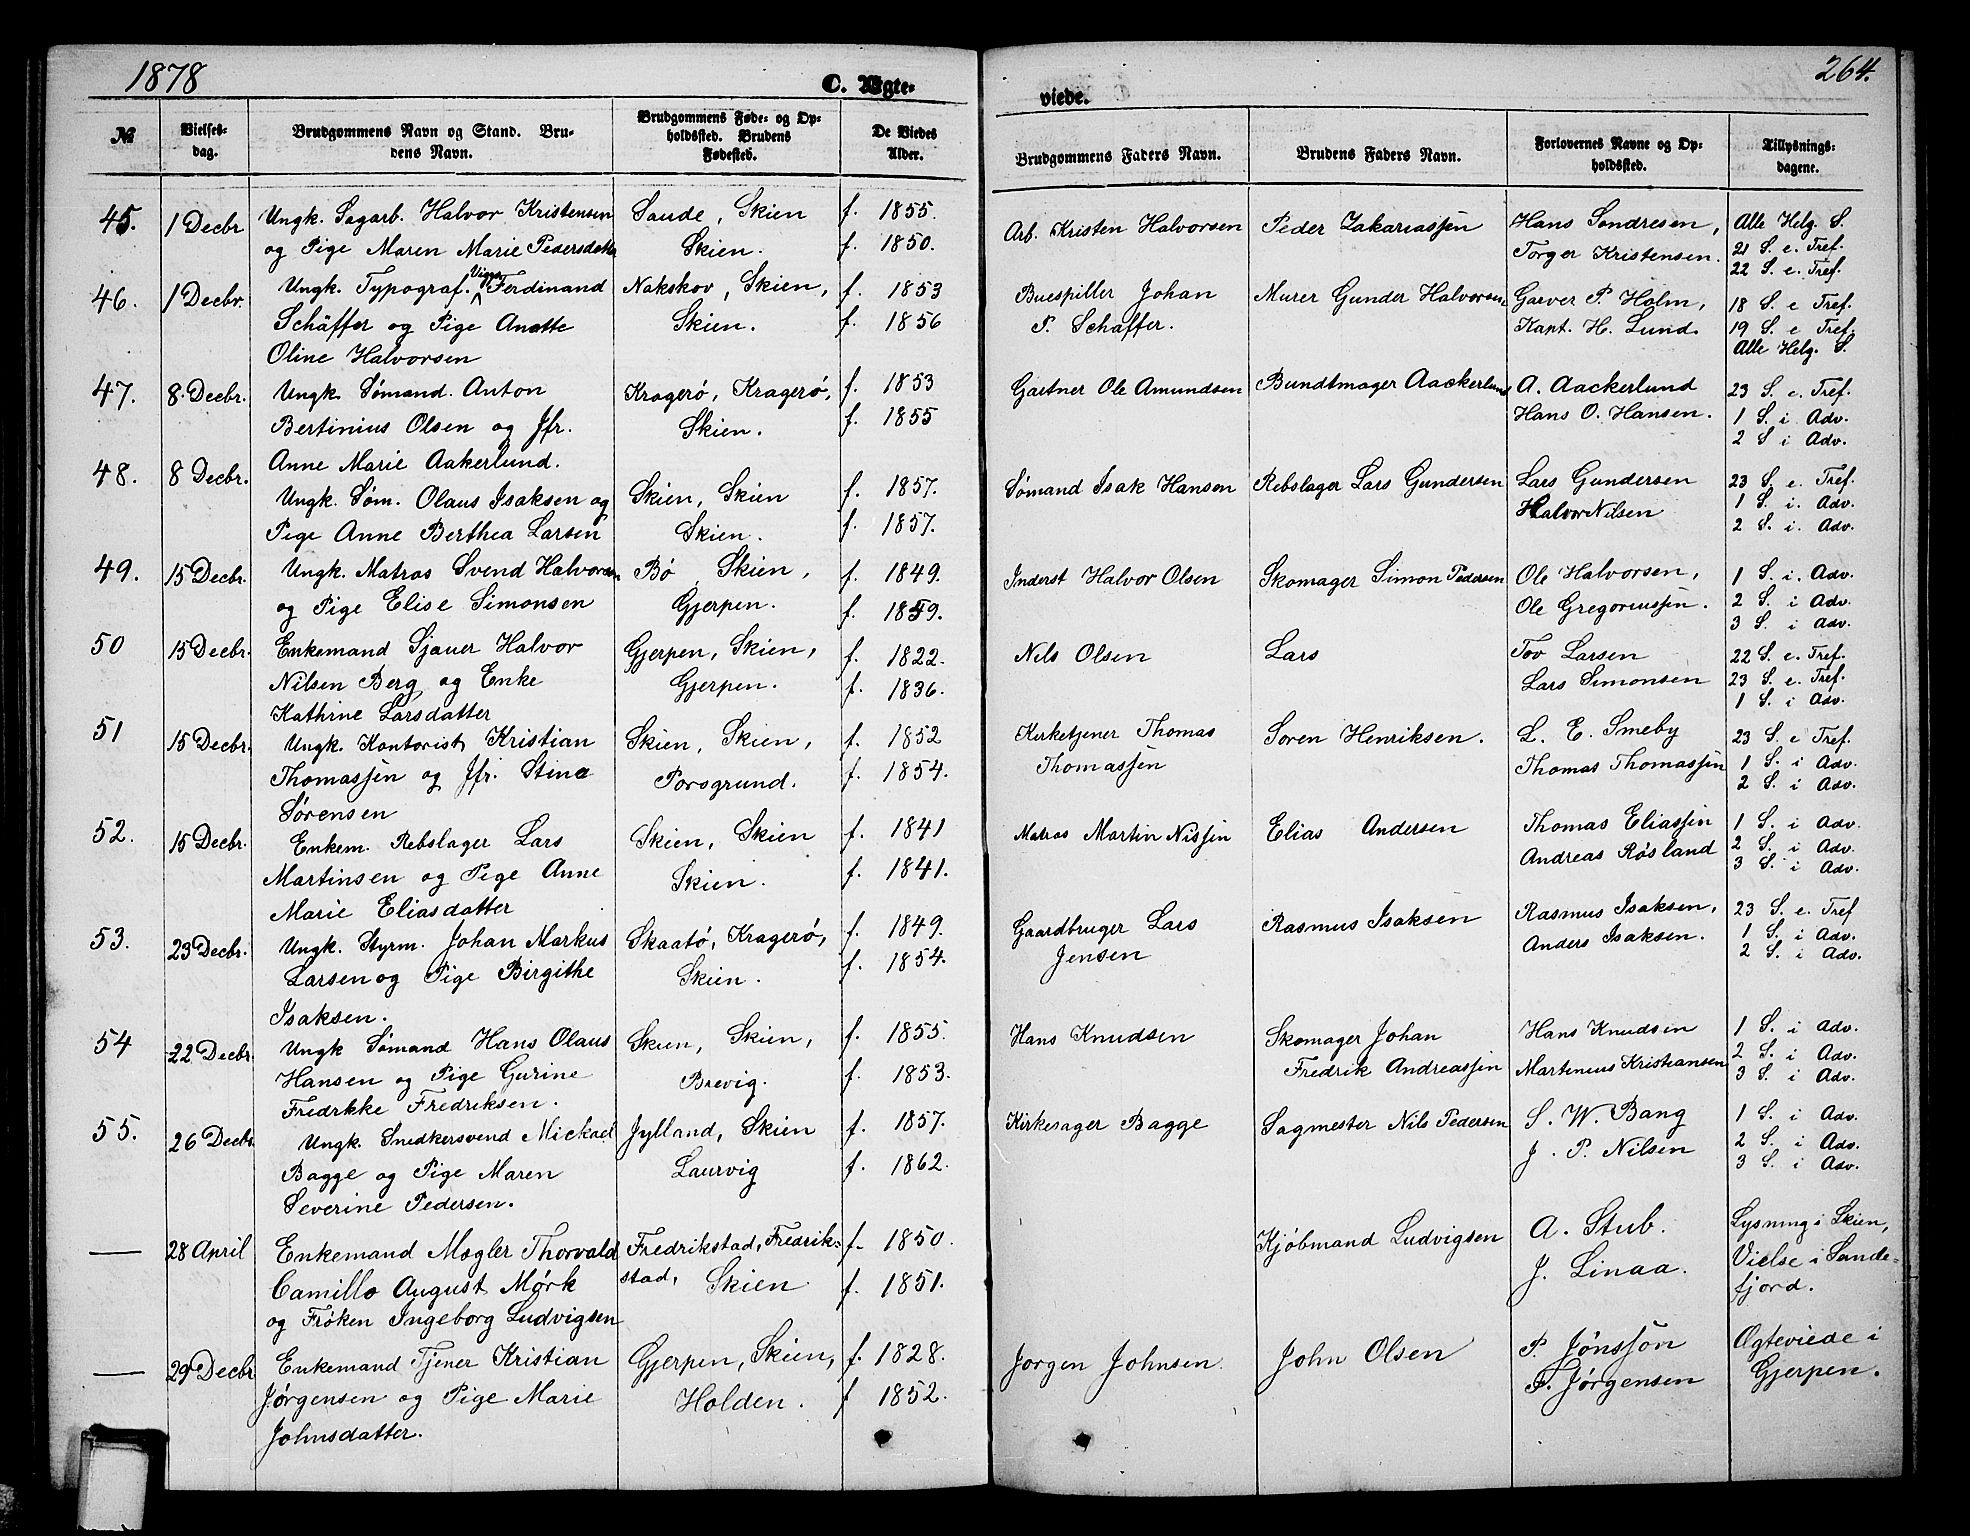 1878
C. Ægte-
viede.
264.
№
Vielses-
dag.
Brudgommens Navn og Stand. Bru-
dens Navn.
Brudgommens Føde- og Op-
holdssted. Brudens
Fødested.
De Viedes
Alder.
Brudgommens Faders Navn.
Brudens Faders Navn.
Forlovernes Navne og Op-
holdssted.
Tillysnings-
dagene.
45. 1 Decbr Ungk. Sagarb. Halvor Kristensen Saude, Skien f. 1855. Arb. Kristen Halvorsen Peder Zakariassen Hans Sondresen, Alle Helg. S.
og Pige Maren Marie Pedersdatter Skien. f. 1850. Torger Kristensen. 21 S. e. Tref.
22 S. e. Tref.
46. 1 Decbr. Ungk. Typograf. Viggo Ferdinand Nakskov, Skien, f. 1853 Buespiller Johan Murer Gunder Halvorsen Garver P. Holm, 18 S. e Tref.
Schäffer og Pige Anette Skien. f. 1856 P. Schäffer. Kapt. H. Lund. 19 S. e Tref.
Oline Halvorsen Alle Helg. S.
47. 8 Decbr. Ungk. Sømand. Anton Kragerø, Kragerø, f. 1853 Gartner Ole Amundsen Bundtmager Aackerlund A. Aackerlund 23 S. e. Tref.
Bertinius Olsen og Jfr. Skien. f. 1855 Hans O. Hansen. 1 S. i Adv.
Anne Marie Aakerlund. 2 S i Adv.
48. 8 Decbr. Ungk. Søm. Olaus Isaksen og Skien, Skien f. 1857. Sømand Isak Hansen Rebslager Lars Gundersen Lars Gundersen 23 S. e. Tref.
Pige Anne Berthea Larsen Skien. f. 1857. Halvor Nilsen 1 S. i. Adv.
2 S. i. Adv.
49. 15 Decbr. Ungk. Matros Svend Halvorsen Bø, Skien, f. 1849. Inderst Halvor Olsen Skomager Simon Pedersen Ole Halvorsen, 1 S. i. Adv.
og Pige Elise Simonsen Gjerpen. f. 1859. Ole Gregoriussen. 2 S. i Adv.
3 S. i Adv.
50 15 Decbr. Enkemand Sjauer Halvor Gjerpen, Skien, f. 1822. Nils Olsen Lars Tov Larsen 22 S. e. Tref.
Nilsen Berg og Enke Gjerpen. f. 1836. Lars Simonsen 23 S. e. Tref.
Kathrine Larsdatter 1 S. i Adv.
51 15 Decbr. Ungk. Kontorist Kristian Skien, Skien, f. 1852 Kirketjener Thomas Soren Henriksen. L. E. Smeby 23 S. e Tref.
Thomassen og Jfr. Stina Porsgrund. f. 1854. Thomassen Thomas Thomassen 1 S. i Adv.
Sørensen 2 S. i Adv.
52. 15 Decbr. Enkem. Rebslager Lars Skien, Skien f. 1841 Matros Martin Nissen Elias Andersen Thomas Eliassen 1 S. i Adv.
Martinsen og Pige Anne Skien. f. 1841. Andreas Røsland 2 S. i Adv.
Marie Eliasdatter 3 S. i Adv.
53. 23 Decbr. Ungk. Styrm. Johan Markus Skaatø, Kragerø, f. 1849. Gaardbruger Lars Rasmus Isaksen Rasmus Isaksen, 23 S. e. Tref
Larsen og Pige Birgithe Skien. f. 1854. Jensen Anders Isaksen. 1 S. i Adv.
Isaksen. 2 S. i Adv.
54 22 Decbr. Ungk Sømand Hans Olaus Skien, Skien, f. 1855. Hans Knudsen Skomager Johan Hans Knudsen 1 S. i Adv.
Hansen og Pige Gurine Brevig. f. 1853. Fredrik Andreassen Martinius Kristiansen 2 S. i Adv.
Fredrkke Fredriksen. 3 S. i Adv.
55. 26 Decbr. Ungk. Snedkersvend Mickael Jylland, Skien f. 1857. Kirkesager Bagge Sagmester Nils Pedersen S. W. Bang 1 S. i Adv.
Bagge og Pige Maren Laurvig f. 1862. J. P. Nilsen 2 S. i Adv.
Severine Pedersen. 3 S. i Adv.
— 28 April Enkemand Mægler Thorvald Fredrikstad, Fredrik- f. 1850. Kjøbmand Ludvigsen A. Stub. Lysning i Skien,
Camillo August Mørk stad, Skien f. 1851. J. Linaa. Vielse i Sande-
og Frøken Ingeborg Ludvigsen fjord.
— 29 Decbr Enkemand Tjener Kristian Gjerpen, Skien, f. 1828. Jorgen Johnsen. John Olsen P. Jønssøn Ægteviede i
Jørgensen og Pige Marie Holden. f 1852. F. Jørgensen Gjerpen.
Johnsdatter.